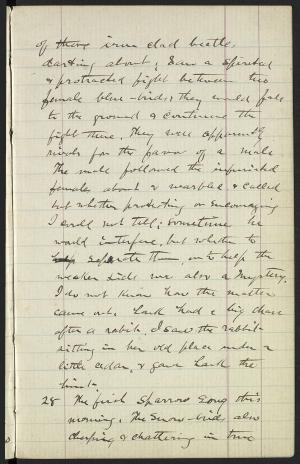 of those iron clad beetles
darting about; Saw a spirited
& protracted fight between two
female blue-birds; they would fall
to the ground & continue the
fight there. They were apparently
rivals for the favor of a male
The male followed the infuriated
females about & warbled & called
but whether protesting or encouraging
I could not tell; sometimes he
would interfere, but whether to
separate them, or to help the
weaker side was also a mystery.
I do not know how the matter
came out. Lark had a big chase
after a rabbit. I saw the rabbit
sitting in her old place under a
little cedar, & gave Lark the
hint.
28 The first Sparrow song this
morning, The Snow-bird, also
chirping & chattering in true